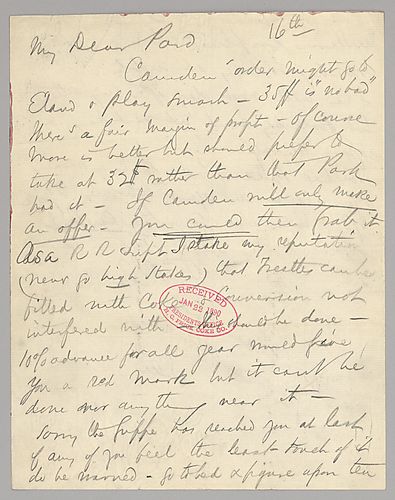 16th
My Dear Pard
Camden order might go to
Eland & play smash – 35 ft is "no bad"
there's a fair margin of profit – of course
more is better but should prefer to
take at 32 rather than that Park
had it – If Camden will only make
an offer – You could then grab it
As a R R I stake my reputation
(never go high stakes) that can be
filled with Coke & conversion not
interfered with – be done –
10% advance for all year would give
you a red mark but it can't be
done nor anything near it –
Sorry the Grippe has reached you at last
if any of you feel the least touch of it
do be warned – go to bed & figure upon ten
RECEIVED
JAN 22 1890
PRESIDENT'S OFFICE
H. C. FRICK COKE CO.